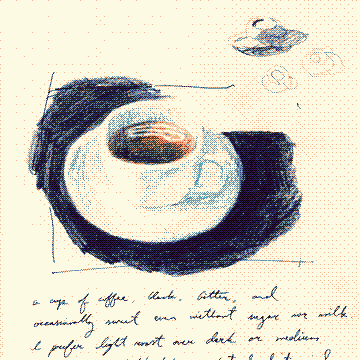 a cup of coffee, black, bitter, and
occasionally sweet even without sugar nor milk
I prefer light roast over dark or medium